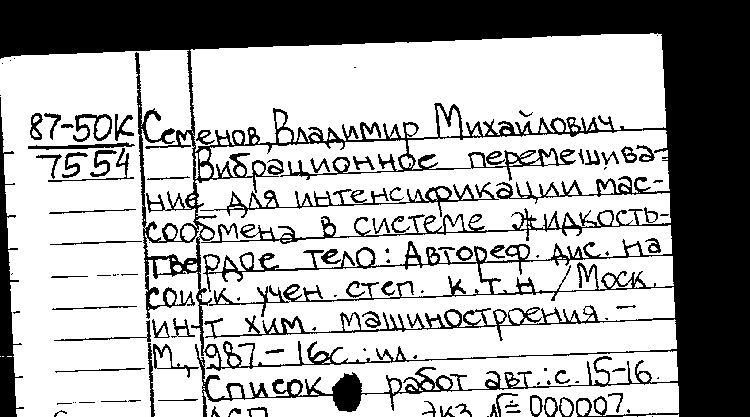 87-50К Семенов, Владимир Михайлович.
7554 Вибрационное перемешива-
ние для интенсификации мас-
сообмена в системе жидкость-
твердое тело: Автореф. дис. на
соиск. учен. степ. к.т.н. / Моск.
ин-т хим. машиностроения. –
М., 1987. – 16с.: ил.
Список работ авт.: с. 15-16.
ДСП экз. №= 000007.